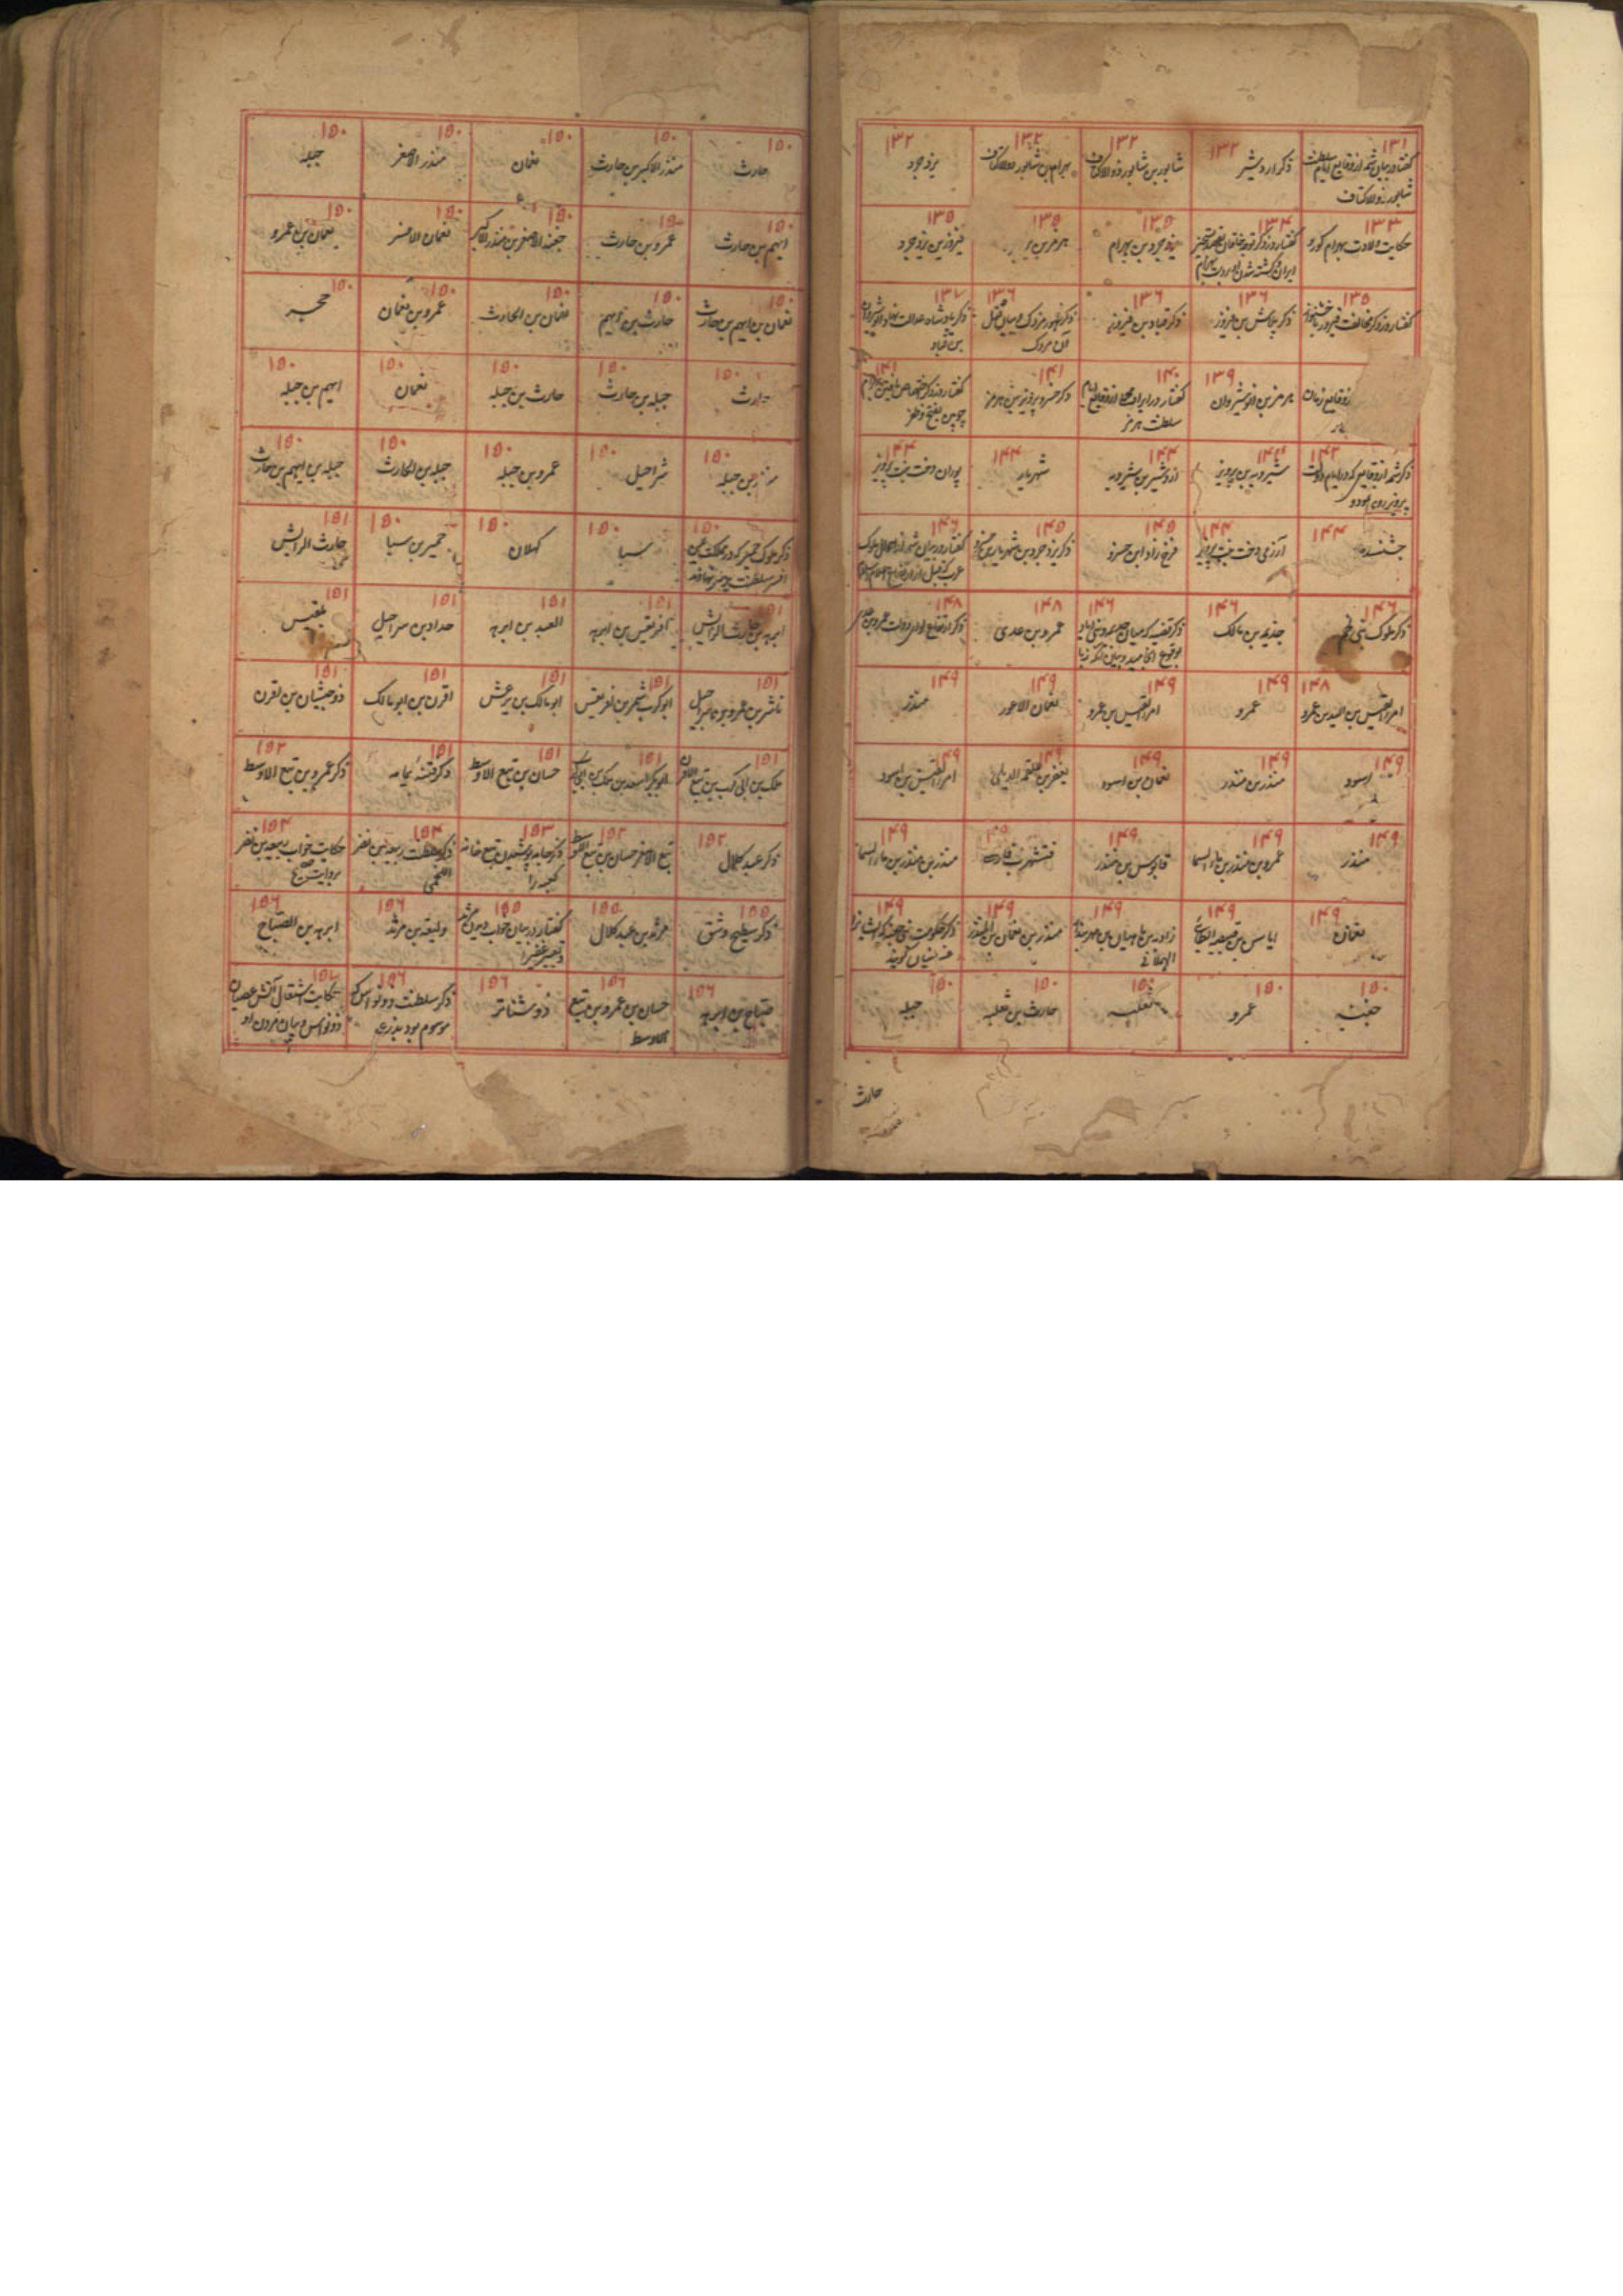 ۱۳۱
گفتار در بیان شمه از وقایع ایام سلطنت
شاپور ذوالاکتاف
۱۳۲
ذکر اردشیر
۱۳۲
شاپور بن شاپور ذوالاکتاف
۱۳۲
بهرام بن شاپور ذوالاکتاف
۱۳۲
یزدجرد
۱۳۳
حکایت ولادت بهرام گور و
۱۳۴
گفتار در ذکر توجه خاقان بقصد تسخیر
ایران و کشته شدن او بدست بهرام
۱۳۵
یزدجرد بن بهرام
۱۳۵
هرمز بن
۱۳۵
فیروز بن یزدجرد
۱۳۵
گفتار در ذکر مخالفت فیروز با خوشنواز
۱۳۶
ذکر بلاش بن فیروز
۱۳۶
ذکر قباد بن فیروز
۱۳۶
ذکر ظهور مزدک و بیان قتل
آن مزدک
۱۳۷
ذکر پادشاه عدالت نهاد انوشیروان
بن قباد
وقایع زمان
۱۳۹
هرمز بن انوشیروان
۱۴۰
گفتار در ایراد از وقایع ایام
سلطنت هرمز
۱۴۱
ذکر خسرو پرویز بن هرمز
۱۴۱
گفتار در ذکر بهرام
چوبین بفتح و ظفر
۱۴۳
ذکر شمه از وقایعی که در ایام دولت
پرویز روی نمود
۱۴۴
شیرویه بن پرویز
۱۴۴
اردشیر بن شیرویه
۱۴۴
شهریار
۱۴۴
پوران دخت بنت پرویز
۱۴۴
جشنسده
۱۴۴
آرزمی دخت بنت پرویز
۱۴۵
فرخ زاد ابن خسرو
۱۴۵
ذکر یزدجرد بن شهریار بن خسرو
۱۴۶
گفتار در بیان شمه از احوال ملوک
عرب که قبل از ارتفاع اعلام اسلام
۱۴۶
ذکر ملوک بنی لخم
۱۴۶
جذیمه بن مالک
۱۴۶
ذکر قضیه که میان جذیمه و بنی ایاد
بوقوع انجامید و بیان آنکه زبا
۱۴۸
عمرو بن عدی
۱۴۸
ذکر ارتفاع لوای دولت عمرو بن عدی
۱۴۸
امراالقیس بن السید بن عمرو
۱۴۹
عمرو
۱۴۹
امراالقیس بن عمرو
۱۴۹
نعمان الاعور
۱۴۹
منذر
۱۴۹
اسود
۱۴۹
منذر بن منذر
۱۴۹
نعمان بن اسود
۱۴۹
یعفر بن علقمه الدیلی
۱۴۹
امراالقیس بن اسود
۱۴۹
منذر
۱۴۹
عمرو بن منذر بن ماءالسما
۱۴۹
قابوس بن منذر
فتشهرت فارسه
۱۴۹
منذر بن منذر بن ماءالسما
۱۴۹
نعمان
۱۴۹
ایاس بن قبیصه الطائی
۱۴۹
زادیه بن ماهبیان بن مهربنداد
الهمدانی
۱۴۹
منذر بن نعمان بن المنذر
۱۴۹
ذکر حکومت بنی جفنه که ایشانرا
غسانیان گویند
۱۵۰
جفنه
۱۵۰
عمرو
۱۵۰
ثعلبه
۱۵۰
حارث بن ثعلبه
۱۵۰
جبله
حارث
۱۵۰
حارث
۱۵۰
منذر الاکبر بن حارث
۱۵۰
نعمان
۱۵۰
منذر الاصغر
۱۵۰
جبله
۱۵۰
ایهم بن حارث
۱۵۰
عمرو بن حارث
۱۵۰
جفنه الاصغر بن منذر الاکبر
۱۵۰
نعمان الاصغر
۱۵۰
نعمان بن عمرو
۱۵۰
نعمان بن ایهم بن حارث
۱۵۰
حارث بن ایهم
۱۵۰
نعمان بن الحارث
۱۵۰
عمرو بن نعمان
۱۵۰
حجر
۱۵۰
حارث
۱۵۰
جبله بن حارث
۱۵۰
حارث بن جبله
۱۵۰
نعمان
۱۵۰
ایهم بن جبله
۱۵۰
منذر بن جبله
۱۵۰
شراحیل
۱۵۰
عمرو بن جبله
۱۵۰
جبله بن الحارث
۱۵۰
جبله بن ایهم بن حارث
۱۵۰
ذکر ملوک حمیر که در مملکت یمن
افسر سلطنت بر سر نهادند
۱۵۰
سبا
۱۵۰
کهلان
۱۵۰
حمیر بن سبا
۱۵۱
حارث الرایش
۱۵۱
ابرهه بن حارث الرایش
۱۵۱
افریقیس بن ابرهه
۱۵۱
العبد بن ابرهه
۱۵۱
حداد بن سراحیل
۱۵۱
بلقیس
۱۵۱
ناشر بن عمرو بن شراحیل
۱۵۱
ابوکرب شمر بن افریقیس
۱۵۱
ابومالک بن یرعش
۱۵۱
اقرن بن ابومالک
۱۵۱
ذوحبشان بن اقرن
۱۵۱
ملک بن ابی کرب بن تبع الاقرن
۱۵۱
ابوبکر اسعد بن ملک بن ابی کرب
۱۵۱
حسان بن تبع الاوسط
۱۵۱
ذکر فتنه یمامه
۱۵۲
ذکر عمرو بن تبع الاوسط
۱۵۲
ذکر عبد کلال
۱۵۲
تبع الاصغر حسان بن تبع الاوسط
۱۵۳
ذکر جامه پوشیدن تبع خانه
کعبه را
۱۵۴
ذکر سلطنت ربیعه بن نضر
اللخمی
۱۵۴
حکایت خواب ربیعه بن نضر
بروایت صحیح
۱۵۵
ذکر سطیح و شق
۱۵۵
مرثد بن عبد کلال
۱۵۵
گفتار در بیان خواب دیدن مرثد
و تعبیر عفیرا
۱۵۶
ولیعه بن مرثد
۱۵۶
ابرهه بن الصباح
۱۵۶
صباح بن ابرهه
۱۵۶
حسان بن عمرو بن تبع
الاوسط
۱۵۶
ذوشناتر
۱۵۶
ذکر سلطنت ذونواس که
موسوم بود بذرعه
حکایت اشتعال آتش عصیان
ذونواس و بیان مردن او